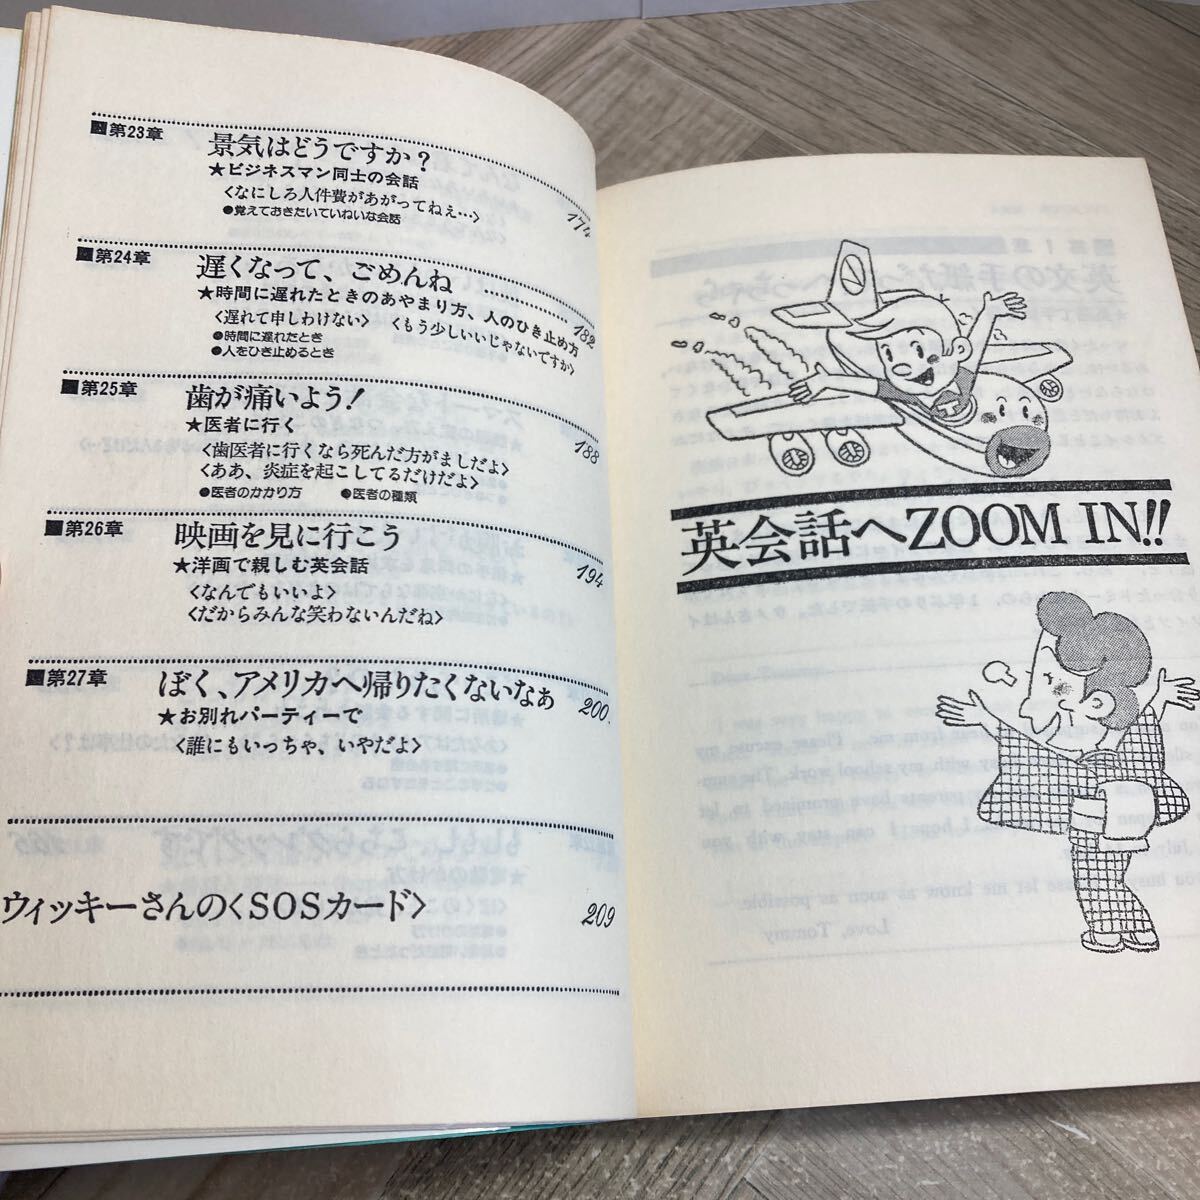 第23章
景気はどうですか？
★ビジネスマン同士の会話
174
〈なにしろ人件費があがってねぇ…〉
●覚えておきたいていねいな会話
第24章
遅くなって、ごめんね
★時間に遅れたときのあやまり方、人のひき止め方
182
〈遅れて申しわけない〉 〈もう少しいいじゃないですか〉
●時間に遅れたとき
●人をひき止めるとき
第25章
歯が痛いよう！
★医者に行く
188
〈歯医者に行くなら死んだ方がましだよ〉
〈ああ、炎症を起こしてるだけだよ〉
●医者のかかり方 ●医者の種類
第26章
映画を見に行こう
★洋画で親しむ英会話
194
〈なんでもいいよ〉
〈だからみんな笑わないんだね〉
第27章
ぼく、アメリカへ帰りたくないなぁ
200
★お別れパーティーで
〈誰にもいっちゃ、いやだよ〉
ウィッキーさんの〈SOSカード〉
209
英会話へZOOM IN!!